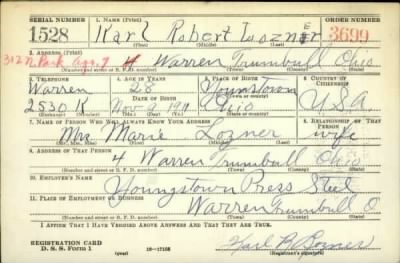 SERIAL NUMBER 1. NAME (Print) ORDER NUMBER
1528 Karl Robert Lozner E 3699
(First) (Middle) (Last)
2. ADDRESS (Print)
312 N. Park Apt. 7 4 Warren Trumbull Ohio
(Number and street or R. F. D. number) (Town) (County) (State)
3. TELEPHONE 4. AGE IN YEARS 5. PLACE OF BIRTH 6. COUNTRY OF CITIZENSHIP
Warren 28 Youngstown
DATE OF BIRTH (Town or county)
2530 K Nov 2 1911 Ohio U.S.A.
(Exchange) (Number) (Mo.) (Day) (Yr.) (State or country)
7. NAME OF PERSON WHO WILL ALWAYS KNOW YOUR ADDRESS 8. RELATIONSHIP OF THAT PERSON
Mrs. Marie Lozner wife
(Mr., Mrs., Miss) (First) (Middle) (Last)
9. ADDRESS OF THAT PERSON
4 Warren Trumbull Ohio
(Number and street or R. F. D. number) (Town) (County) (State)
10. EMPLOYER'S NAME
Youngstown Press Steel
11. PLACE OF EMPLOYMENT OR BUSINESS
Warren Trumbull O
(Number and street or R. F. D. number) (Town) (County) (State)
I AFFIRM THAT I HAVE VERIFIED ABOVE ANSWERS AND THAT THEY ARE TRUE.
REGISTRATION CARD
D. S. S. Form 1 16—17105 Karl R Lozner
(Registrant's signature)